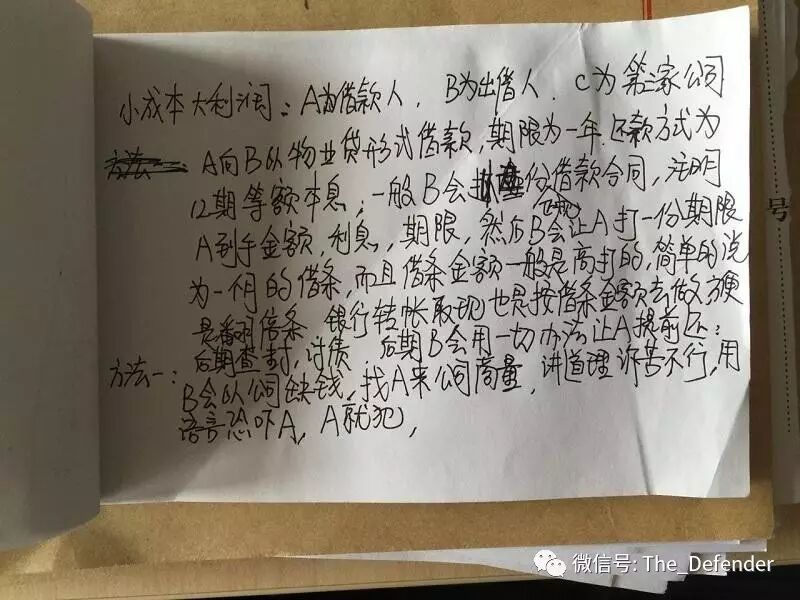 小成本大利润：A为借款人，B为出借人，C为第三家公司
A向B以物业贷形式借款，期限为一年，还款方式为
12期等额本息，一般B会 份借款合同，注明
A到手金额，利息，期限，然后B会让A打一份期限
为一个月的借条，而且借条金额一般是高打的，简单的说
是翻倍条，银行转帐取现也是按借条金额去做，方便
后期查封，讨债 后期B会用一切办法让A提前还：
方法一：B会以公司缺钱，找A来公司商量，讲道理诉苦不行，用
语言恐吓A，A就犯，
号
微信号: The_Defender